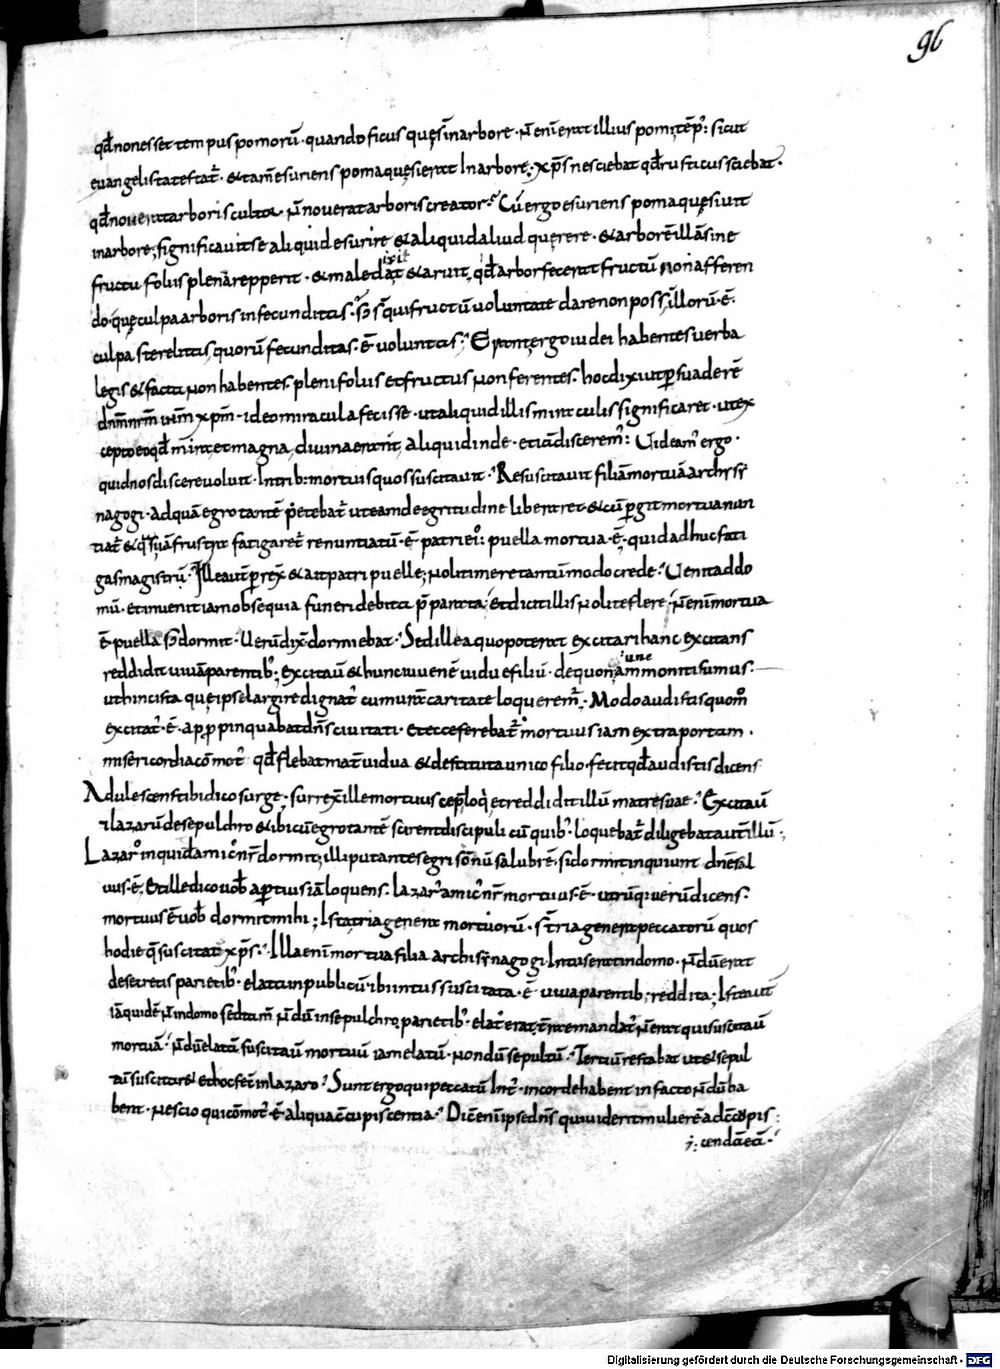 96
qđ non esset tempus pomorū · quando ficus quęsīt in arbore · n̄ enī erat illius pomi tēp᷒ : sicut
euangelista testat᷒ · & tam̄ esuriens poma quęsierat In arbore ; xp̄s nesciebat qđ rusticus sciebat ·
qđ nouerat arboris cultor n̄ nouerat arboris creator ? Cū ergo esuriens poma quęsiuit
in arbore ; significauit se aliquid esurire & aliquid aliud querere · & arborē illā sine
fructu foliis plenā repperit · & maledix̄it & aruit , qđ arbor fecerat fructū non afferen
do · quę culpa arboris infecunditas · s; s̄ qui fructū uoluntate dare non poss̄ illorū ·ē·
culpa sterelitas , quorū fecunditas · ē uoluntas ; Erant ergo iudei habentes uerba
legis & facta non habentes · pleni foliis et fructus non ferentes · hoc dixi ut p̄suaderē
dnm̄ nrm̄ ihm̄ xpm̄ · ideo miracula fecisse · ut aliquid illis miraculis significaret · ut ex
cepto eo qđ mira et magna , diuina erant , aliquid inde · etiā discerem᷒ : Uideam᷒ ergo ·
quid nos discere uoluit · In trib : mortuis quos suscitauit · Resuscitauit filiā mortuā archisy
nagogi · ad quā egrotantē petebat᷒ ut eam de egritudine liberaret · & cū pgit mortua nun
tiat᷒ & q̄si iā frustra fatigaret᷒ renuntiatū · ē patri ei᷒ : puella mortua · ē · quid adhuc fati
gas magistrū · Ille aut̄ prex̄ & ait patri puelle ; noli timere tantū modo crede · Uenit ad do
mū · et inuenit iam obsequia funeri debita pparata ; et dicit illis nolite flere ; n̄ enī mortua
ē puella s; dormit · Uerū dix̄ dormiebat · Sed illi a quo poterat excitari hanc excitans
reddidit uiuā parentib᷒ ; excitauit & hunc iuuenē uidue filiū · de quo nunc ammoniti sumus ·
ut hinc ista quę ipse largire dignat᷒ cum ura caritate loquerem᷒ · Modo audistis quom̄o
excitat᷒ · ē · appropinquabat dn̄s ciuitati · et ecce ferebat᷒ mortuus iam extra portam ·
misericordia com̄ot᷒ qđ flebat mat̄ uidua & destituta unico filio · fecit qđ audistis dicens
Adulescens tibi dico surge · surrex̄ ille mortuus cep̄ loq᷒ et reddidit illū matri suae · Excitau̅
& lazarū de sepulchro & ibi cū egrotantē scirent discipuli cū quib᷒ · loquebat᷒ diligebat aut̄ illū ;
Lazar᷒ inquid amic᷒ nr̄ dormit ; illi putantes egri somnū salubrē · si dormit inquiunt dn̄e sal
uus · ē · Et ille dico uob̄ apertius iā loquens · lazar᷒ amic᷒ nr̄ mortuus · ē · utrūq; uerū dicens ·
mortuus ē uob̄ dormit mihi ; Ista tria genera mortuorū · s̄ tria genera peccatorū quos
hodie q᷒ suscitat xp̄s · Illa enī mortua filia archisynagogi Intus erat in domo · n̄dū erat
de secretis parietib᷒ · elata in publicū ibi intus suscitata · ē uiua parentib ; reddita ; Iste aut̄
iā quidē n̄ in domo sed tam̄ n̄dū in sepulchro , parietib᷒ elat᷒ erat , terre mandat᷒ n̄ erat qui suscitau̅
mortuā · n̄dū elatā suscitau̅ mortuū iam elatū · nondū sepultū · Tertiū restabat ut & sepul
tū suscitaret & hoc fec̄ in lazaro · Sunt ergo qui peccatū Int᷒ · in corde habent in facto n̄dū ha
bent · nescio qui com̄ot᷒ ·ē aliqua concupiscentia · Dic̄ enī ipse dn̄s qui uiderit mulierē ad c̄cupis :
cendā eā ·